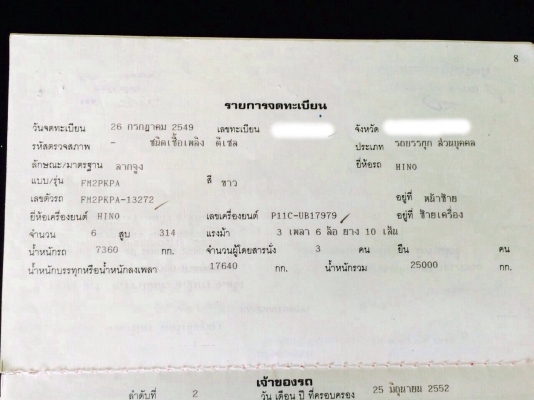 8
รายการจดทะเบียน
วันจดทะเบียน 26 กรกฎาคม 2549 เลขทะเบียน จังหวัด
รหัสตรวจสภาพ - ชนิดเชื้อเพลิง ดีเซล ประเภท รถบรรทุก ส่วนบุคคล
ลักษณะ/มาตรฐาน ลากจูง ยี่ห้อรถ HINO
แบบ/รุ่น FM2PKPA สี ขาว
เลขตัวรถ FM2PKPA-13272 อยู่ที่ หน้าซ้าย
ยี่ห้อเครื่องยนต์ HINO เลขเครื่องยนต์ P11C-UB17979 อยู่ที่ ซ้ายเครื่อง
จำนวน 6 สูบ 314 แรงม้า 3 เพลา 6 ล้อ ยาง 10 เส้น
น้ำหนักรถ 7360 กก. จำนวนผู้โดยสารนั่ง 3 คน ยืน คน
น้ำหนักบรรทุกหรือน้ำหนักลงเพลา 17640 กก. น้ำหนักรวม 25000 กก.
เจ้าของรถ
ลำดับที่ 2 วัน เดือน ปี ที่ครอบครอง 25 มิถุนายน 2552